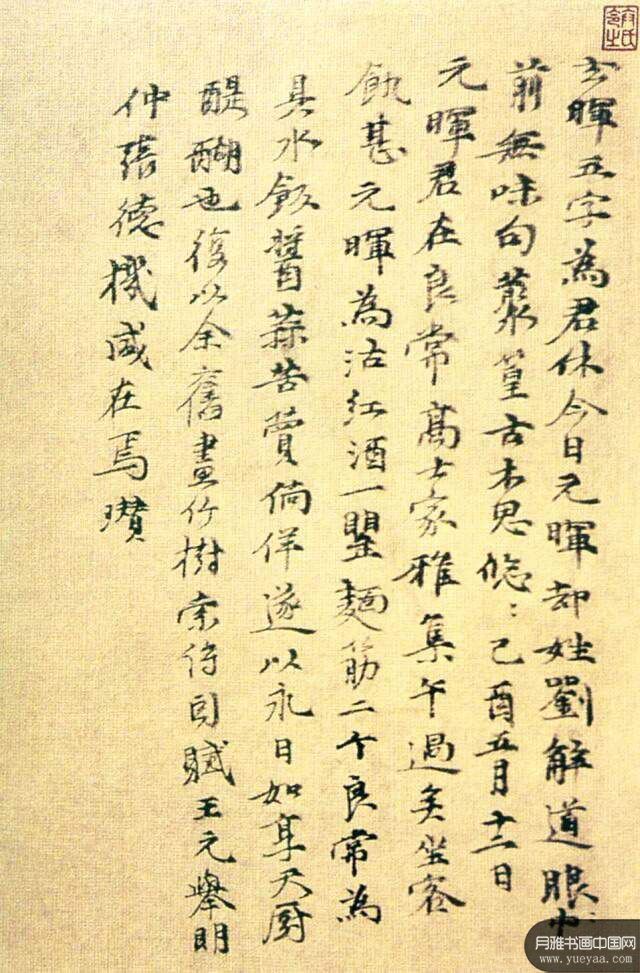 玄暉五字為君休今日元暉却姓劉解道眼中
前無味句叢篁古木思悠:己酉五月十二日
元暉君在良常高士家雅集午過矣坐客
飢甚元暉為沽紅酒一罌麵筋二个良常為
具水飯醬蒜苦蕒倘佯遂以永日如享天厨
醍醐也復以余舊畫竹樹索詩因賦王元舉明
仲張德機咸在焉瓚
月雅书画中国网
www.yueyaa.com